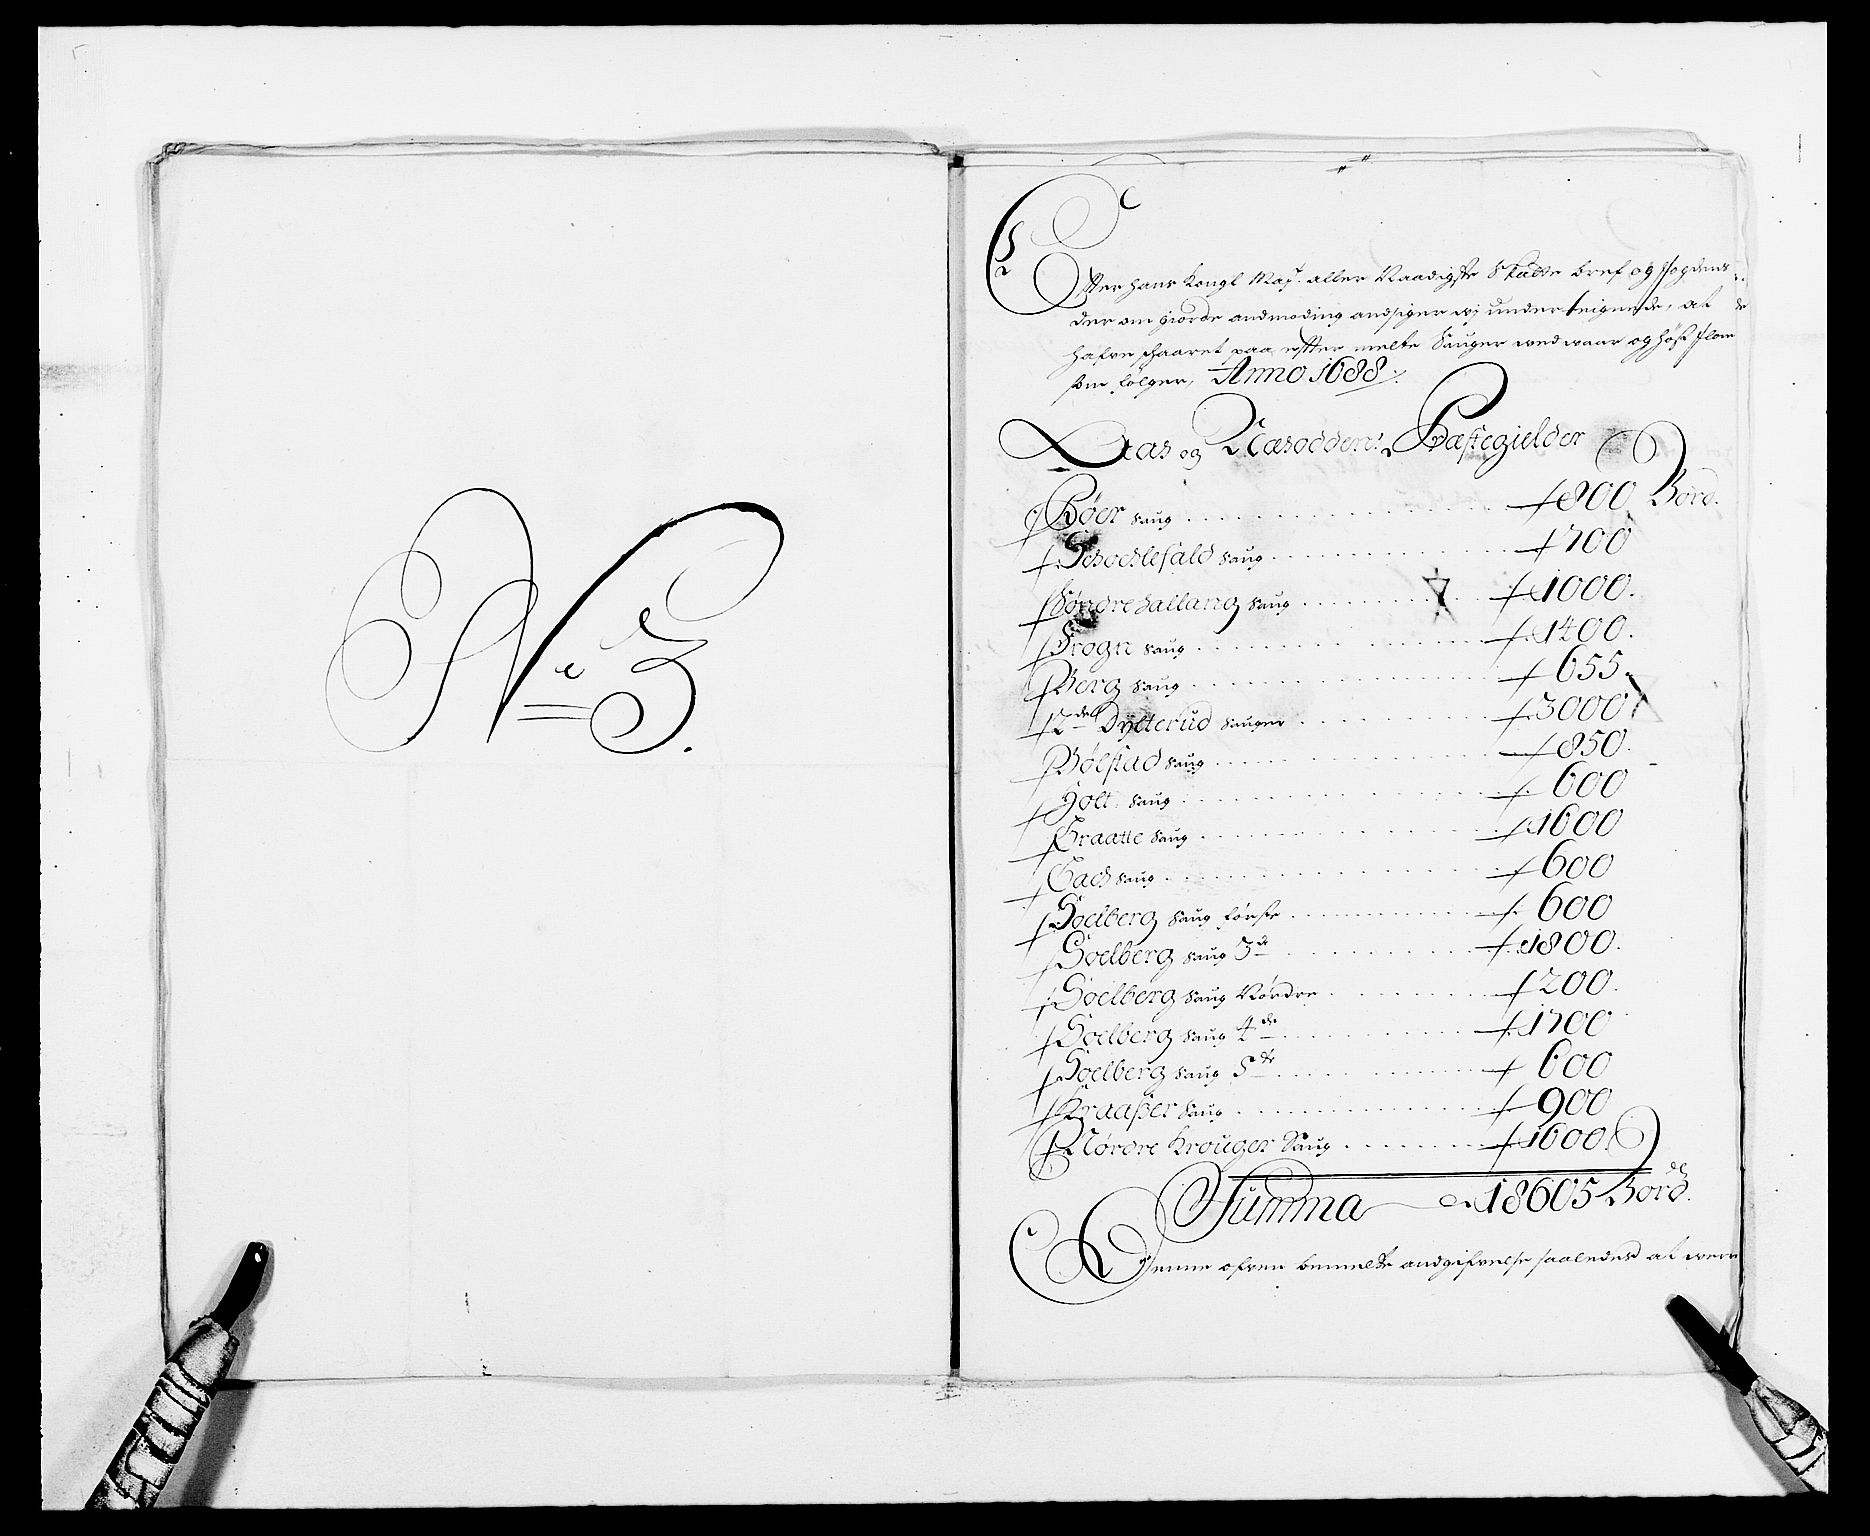 No 3.
Efter hans Kongl May: aller Naadigste Skatte bref og fogdens
der om giorde andmoding andgiger wj underteignede, at
hafve schaaret paa efter melte Sauger wed waar og høst flom
som følger, Anno 1688.
Aas og Næsoddens Præstegielder
Røer saug 800 Bord.
Schochlefald saug 700
Søndre Hallang saug 1000.
Frogn saug 1400.
Berg saug 655.
2de Dytterud sauger 3000
Bølstad saug 850.
Holt saug 600
Braatte saug 1600
Bach saug 600
Soelberg saug første 600
Soelberg saug 3de 1800.
Soelberg saug Nordre 200.
Soelberg saug 4de 1700
Soelberg saug 5te 600
Kraafier saug 900
Nordre Krouger Saug 1600
Summa 18605 Bord.
Denne ofven bemelte andgifvelse saaledes at were